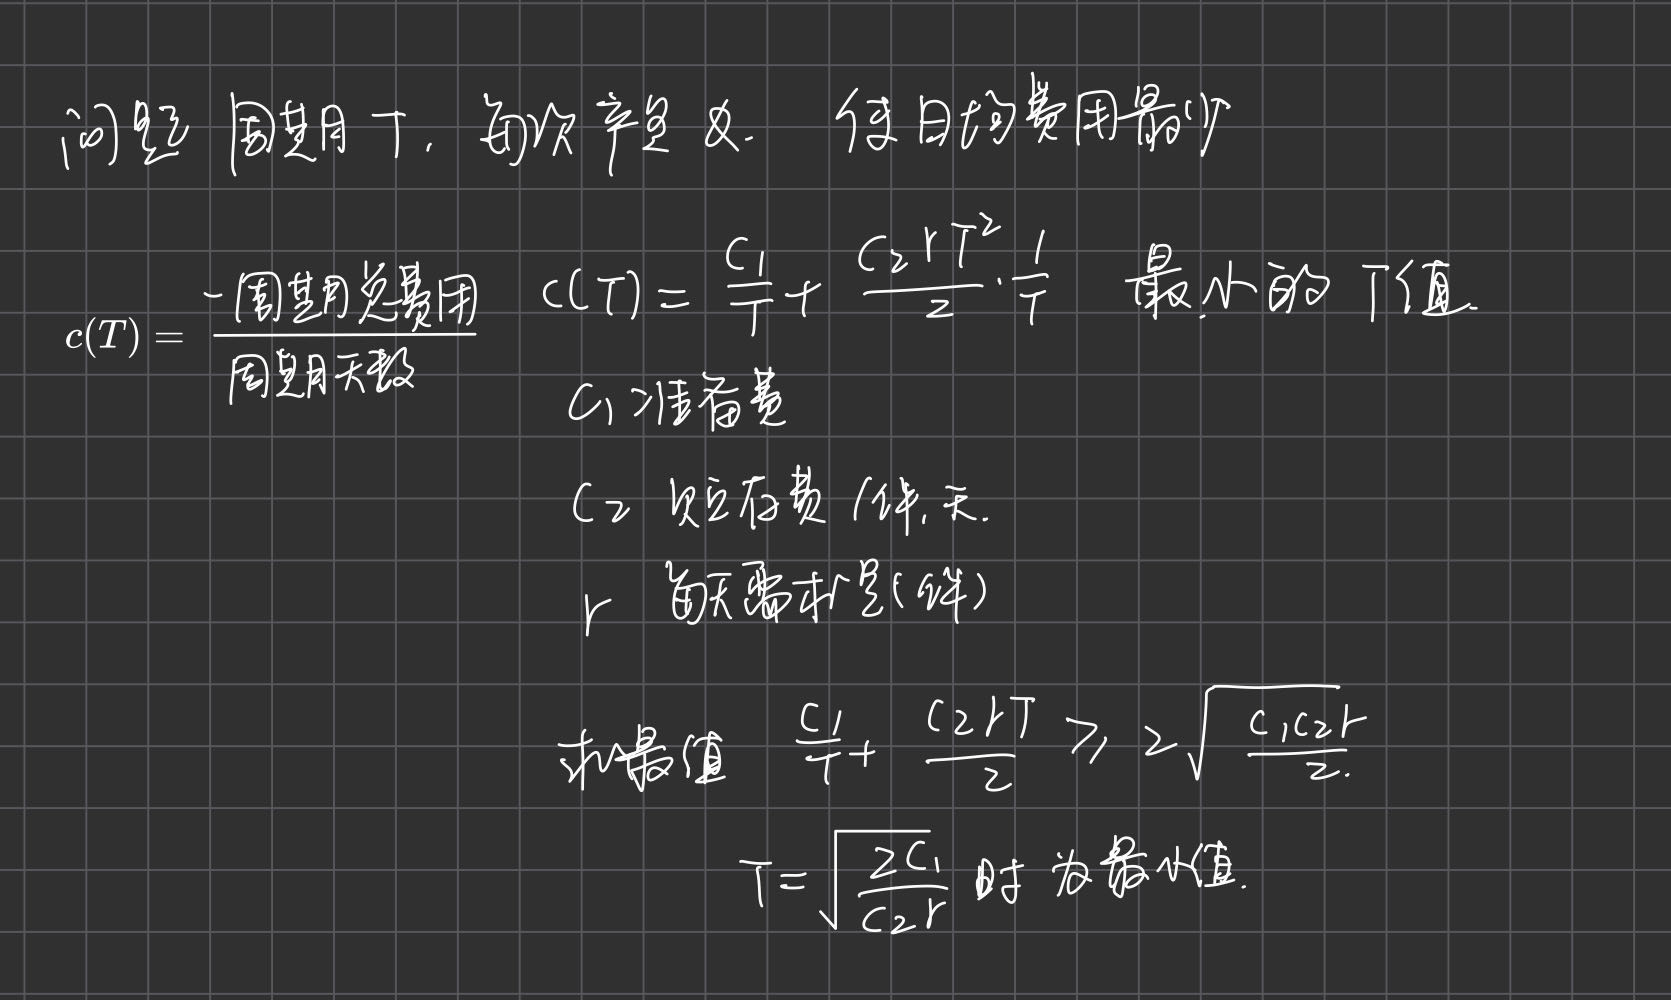 问题 周期T, 每次产量Q. 使日均费用最少
c(T) = 一周期总费用 / 周期天数 C(T) = C₁/T + C₂rT²/2 · 1/T 最小的T值.
C₁ 准备费
C₂ 贮存费 /件.天.
r 每天需求量(件)
求最值 C₁/T + C₂rT/2 ≥ 2√(C₁C₂r/2).
T = √(2C₁/C₂r) 时为最小值.